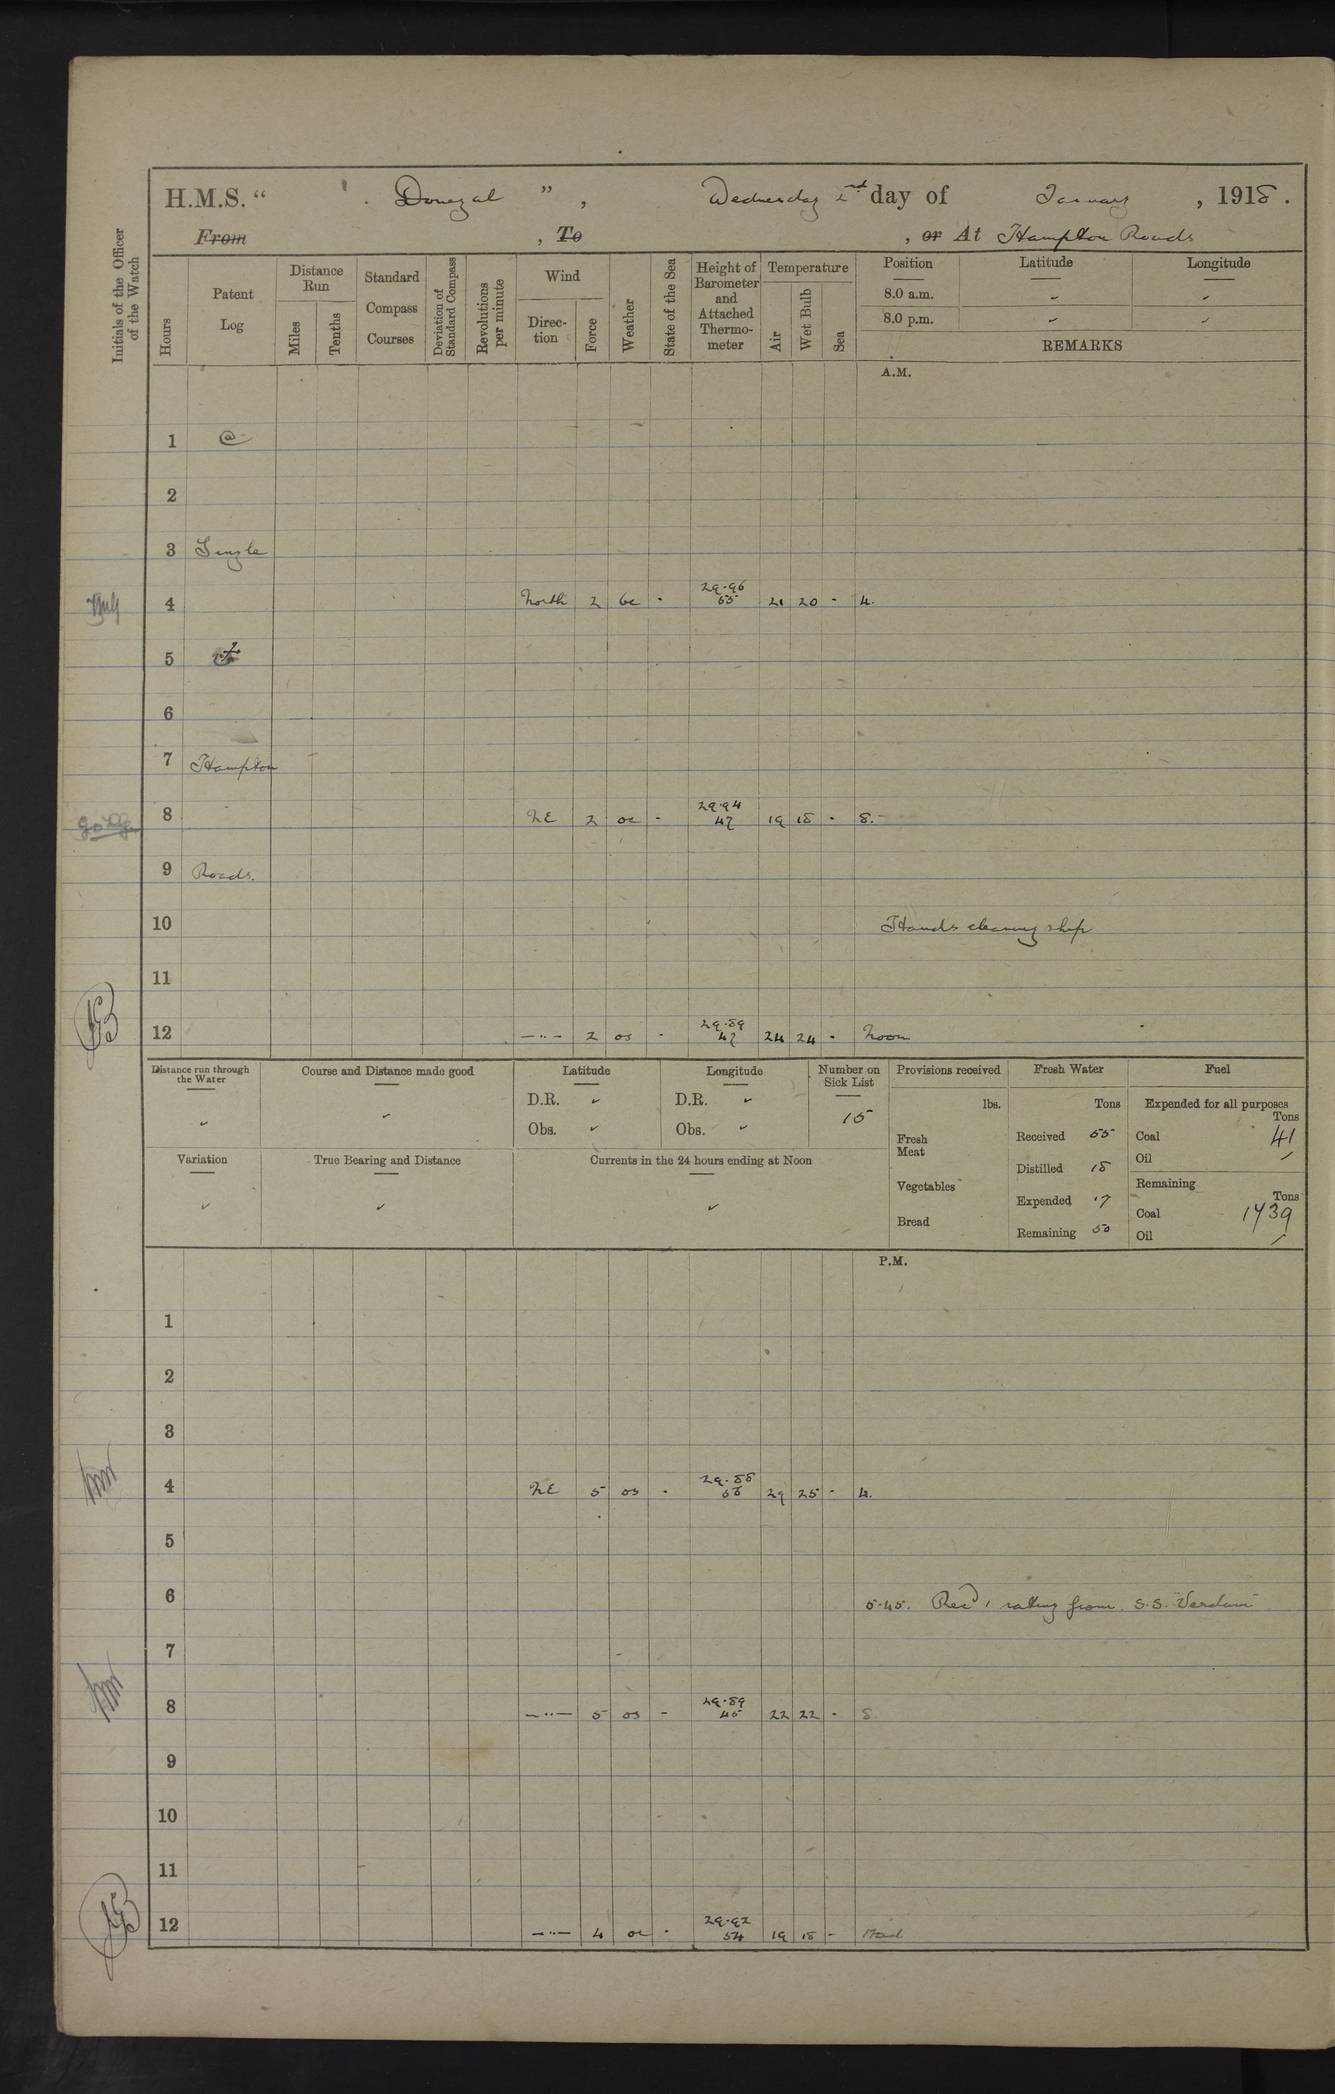 H.M.S. “ Donegal ”, Wednesday 2nd day of January, 1918.
From , To , or At Hampton Roads
Initials of the Officer of the Watch
Hours
Patent Log
Distance Run
Miles
Tenths
Standard Compass Courses
Deviation of Standard Compass
Revolutions per minute
Wind
Direc-tion
Force
Weather
State of the Sea
Height of Barometer and Attached Thermo-meter
Temperature
Air
Wet Bulb
Sea
Position Latitude Longitude
8.0 a.m. ✓ ✓
8.0 p.m. ✓ ✓
REMARKS
A.M.
1 @
2
3 Single
29.96
4 North 2 bc - 55 21 20 - 4.
5
6
7 Hampton
29.94
8 NE 2 oc - 47 19 18 - 8.
9 Roads.
10 Hands cleaning ship
11
29.89
12 —"— 2 os - 47 24 24 - Noon
Distance run through the Water ✓
Course and Distance made good ✓
Latitude
D.R. ✓
Obs. ✓
Longitude
D.R. ✓
Obs. ✓
Number on Sick List
15
Provisions received
lbs.
Fresh Meat
Vegetables
Bread
Fresh Water
Tons
Received 55
Distilled 18
Expended 17
Remaining 50
Fuel
Expended for all purposes
Tons
Coal 41
Oil
Remaining
Tons
Coal 1739
Oil
Variation ✓
True Bearing and Distance ✓
Currents in the 24 hours ending at Noon ✓
P.M.
1
2
3
29.88
4 NE 5 os - 58 29 25 - 4.
5
6 5.45. Recd 1 rating from S.S. "Verdun"
7
29.89
8 —"— 5 os - 45 22 22 - 8.
9
10
11
29.92
12 —"— 4 oc - 54 19 18 - Mid